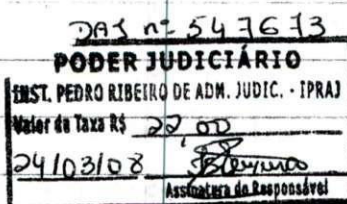 DAJ nº 547673
PODER JUDICIÁRIO
INST. PEDRO RIBEIRO DE ADM. JUDIC. - IPRAJ
Valor da Taxa R$ 22,00
24/03/08
Assinatura do Responsável